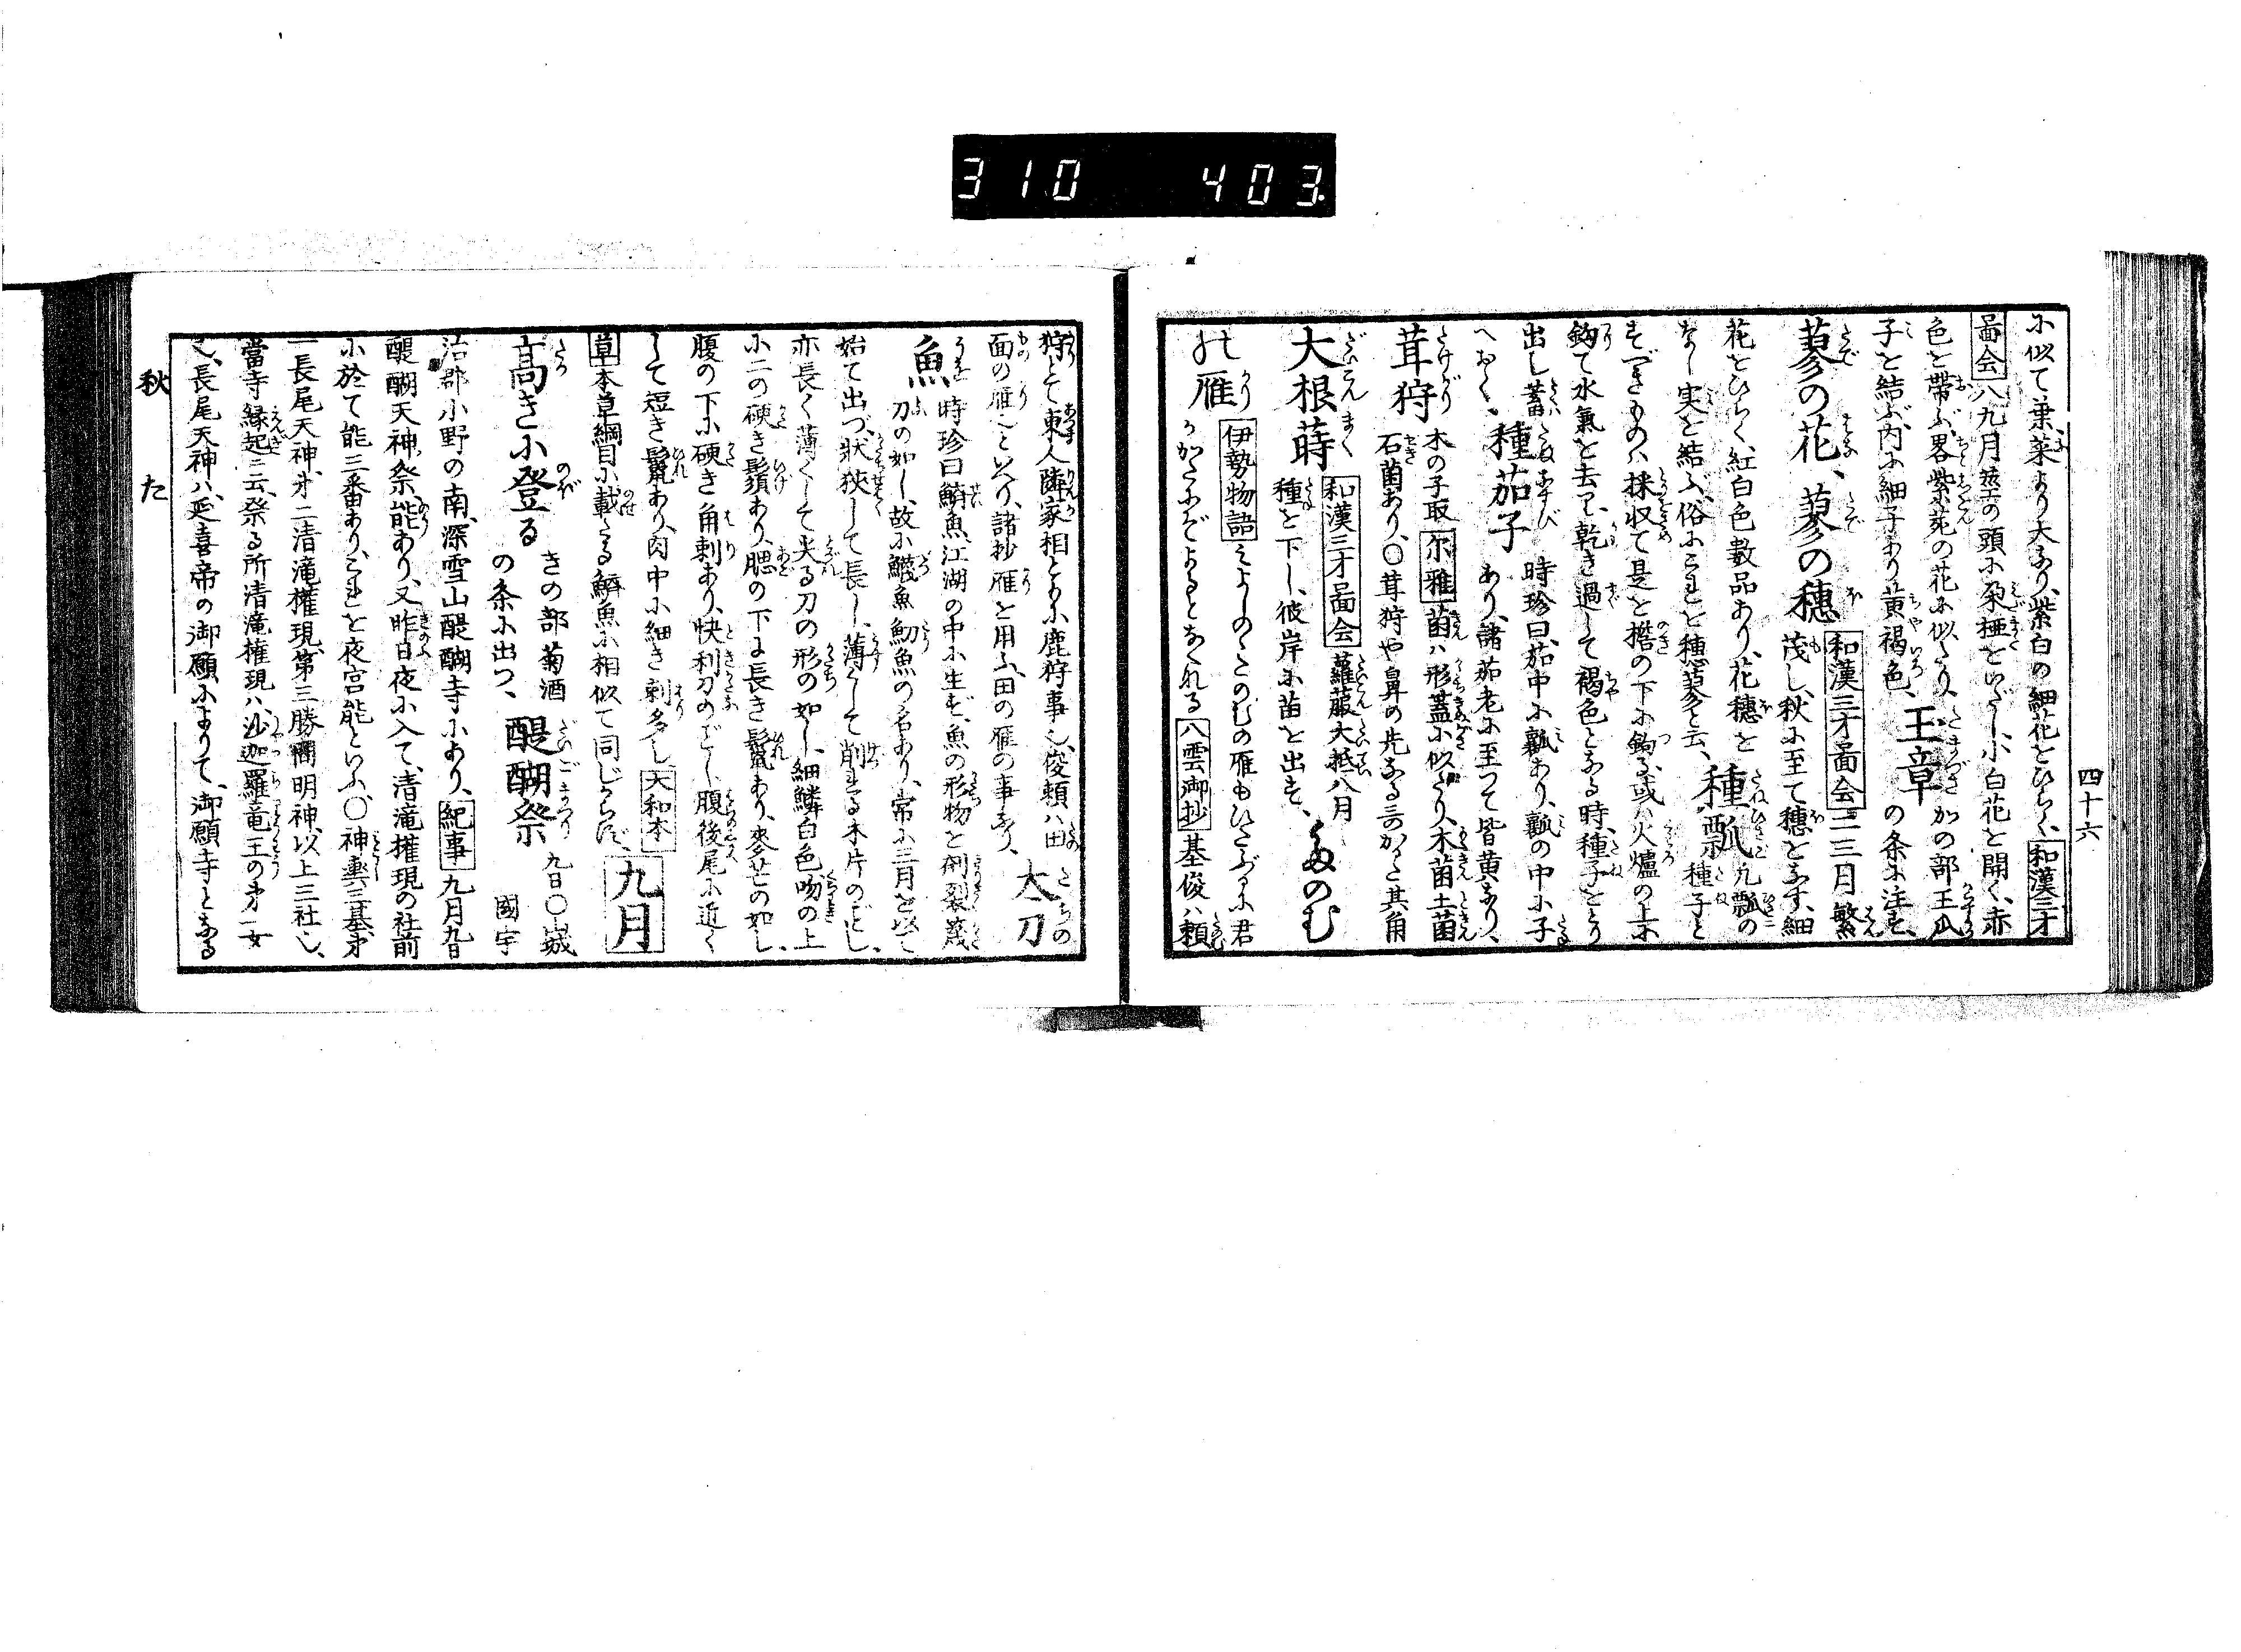 310 403
四十六
に似て葉、菜より大なり、紫白の細花をひらく、和漢三才
啚会八九月茎の頭に朶椏をいだし、小白花を開く、赤
色を帯ぶ、畧紫苑の花に似たり、玉章 かの部王瓜の条に注す、
子を結ぶ、内に細子あり黄褐色、
蓼の花、蓼の穂 和漢三才啚会二三月繁
茂し、秋に至て穂をなす、細
花をひらく、紅白色数品あり、花穂を
なし実を結ぶ、俗にこれを穂蓼と云、種瓢 九瓢の種子と
すべきものハ採収て是を檐の下に鉤る、或ハ火爐の上に
鉤て水氣を去り、乾き過して褐色となる時、種子をとり
出し蓄へおく、種茄子 時珍曰、茄中に瓤あり、瓤の中に子
あり、諸茄老に至つて皆黄なり、
茸狩 木の子取 尔雅 菌ハ形蓋に似たり、木菌土菌
石菌あり、○茸狩や鼻の先なる哥がるた 其角
大根蒔 和漢三才啚会 蘿蔔大抵八月
種を下し、彼岸に苗を出す、たのむ
の雁 伊勢物語 みよしのゝたのむの雁もひたぶるに君
がかたにぞよるとなくなる 八雲御抄 基俊ハ頼
狩とて東人隣家相ともに鹿狩事也、俊頼ハ田
面の雁也といへり、諸抄雁を用ふ、田の雁の事なり、太刀
魚 時珍曰鱭魚、江湖の中に生ず、魚の形物を刪裂篾
刀の如し、故に鱴魚魛魚の名あり、常に三月を以て
始て出づ、狀狹して長し、薄くして削れる木片のごとし、
亦長く薄くして尖る刀の形の如し、細鱗白色、吻の上
に二の硬き鬚あり、腮の下に長き鬣あり、麥芒の如し、
腹の下に硬き角刺あり、快利刀のごとし、腹後尾に近く
して短き鬣あり、肉中に細き刺多し、大和本
草本草綱目に載たる鱭魚に相似て同じからず、九月
高きに登る きの部菊酒の条に出つ、醍醐祭 九日○山城國宇
治郡小野の南、深雪山醍醐寺にあり、紀事九月九日
醍醐天神祭、能あり、又昨日夜に入て、清滝権現の社前
に於て能三番あり、これを夜宮能といふ、○神輿三基、才
一長尾天神、才二清滝權現、第三勝𦚰明神、以上三社也、
當寺縁起ニ云、祭る所清滝権現ハ、沙迦羅竜王の才一女
也、長尾天神ハ、延喜帝の御願によりて、御願寺となる
秋 た